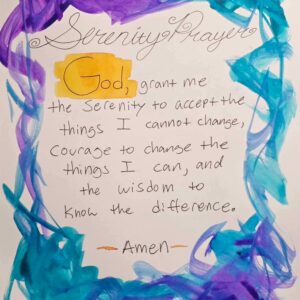 Serenity Prayer
God, grant me
the Serenity to accept the
things I cannot change,
Courage to change the
things I can, and
the wisdom to
Know the difference.
—Amen—